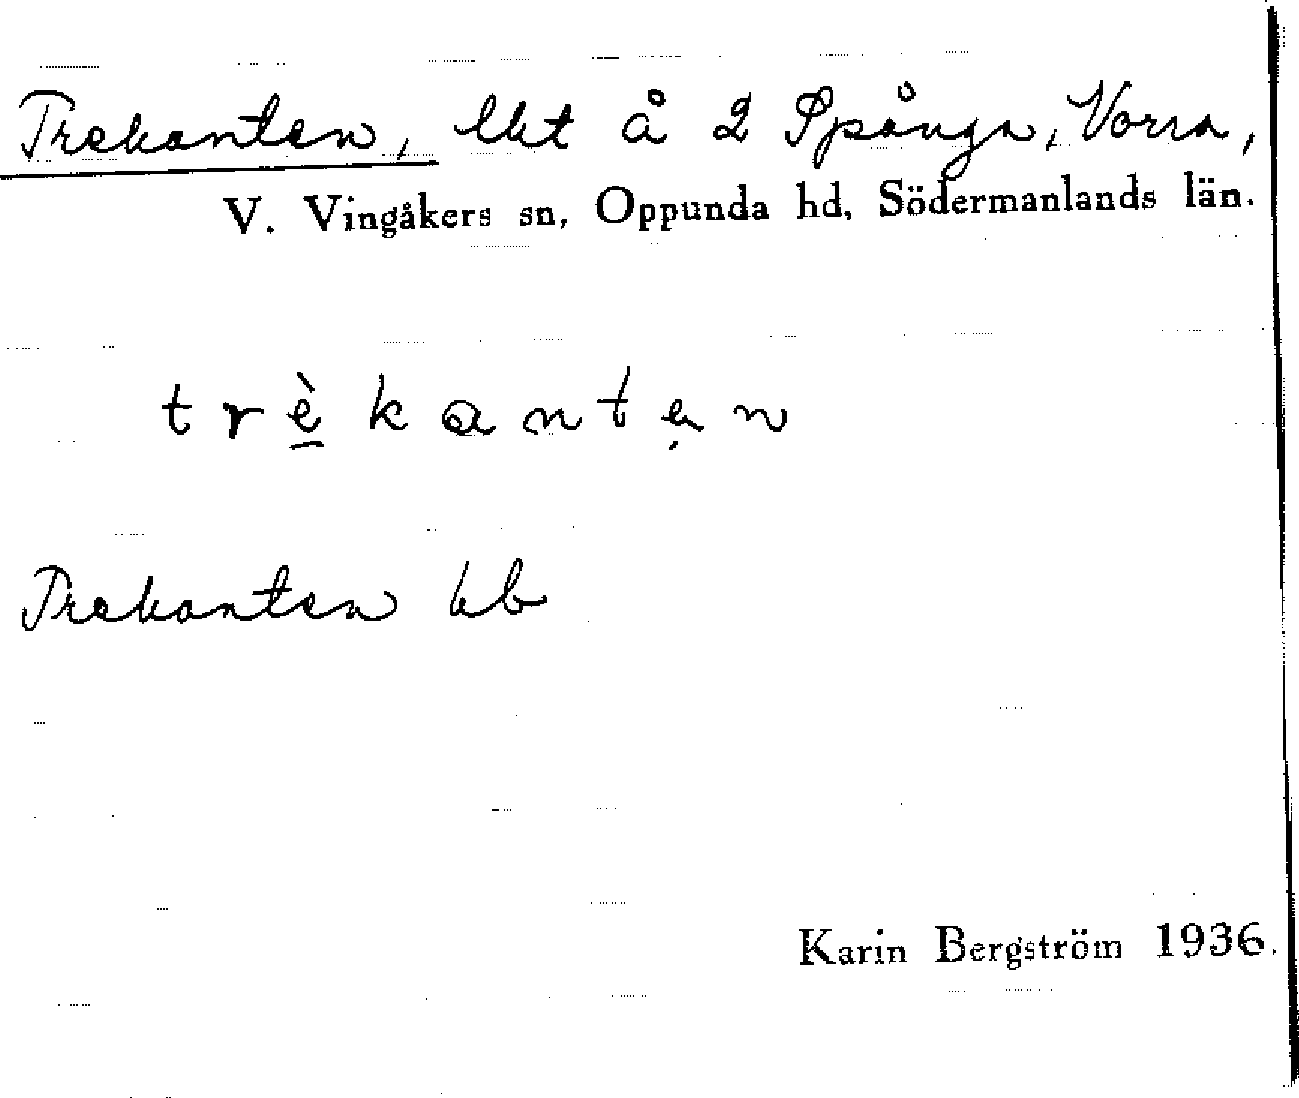 Trekanten, lht å 2 Spånga, Vorra,
V. Vingåkers sn, Oppunda hd, Södermanlands län.
trèkantẹn
Trekanten kb
Karin Bergström 1936.